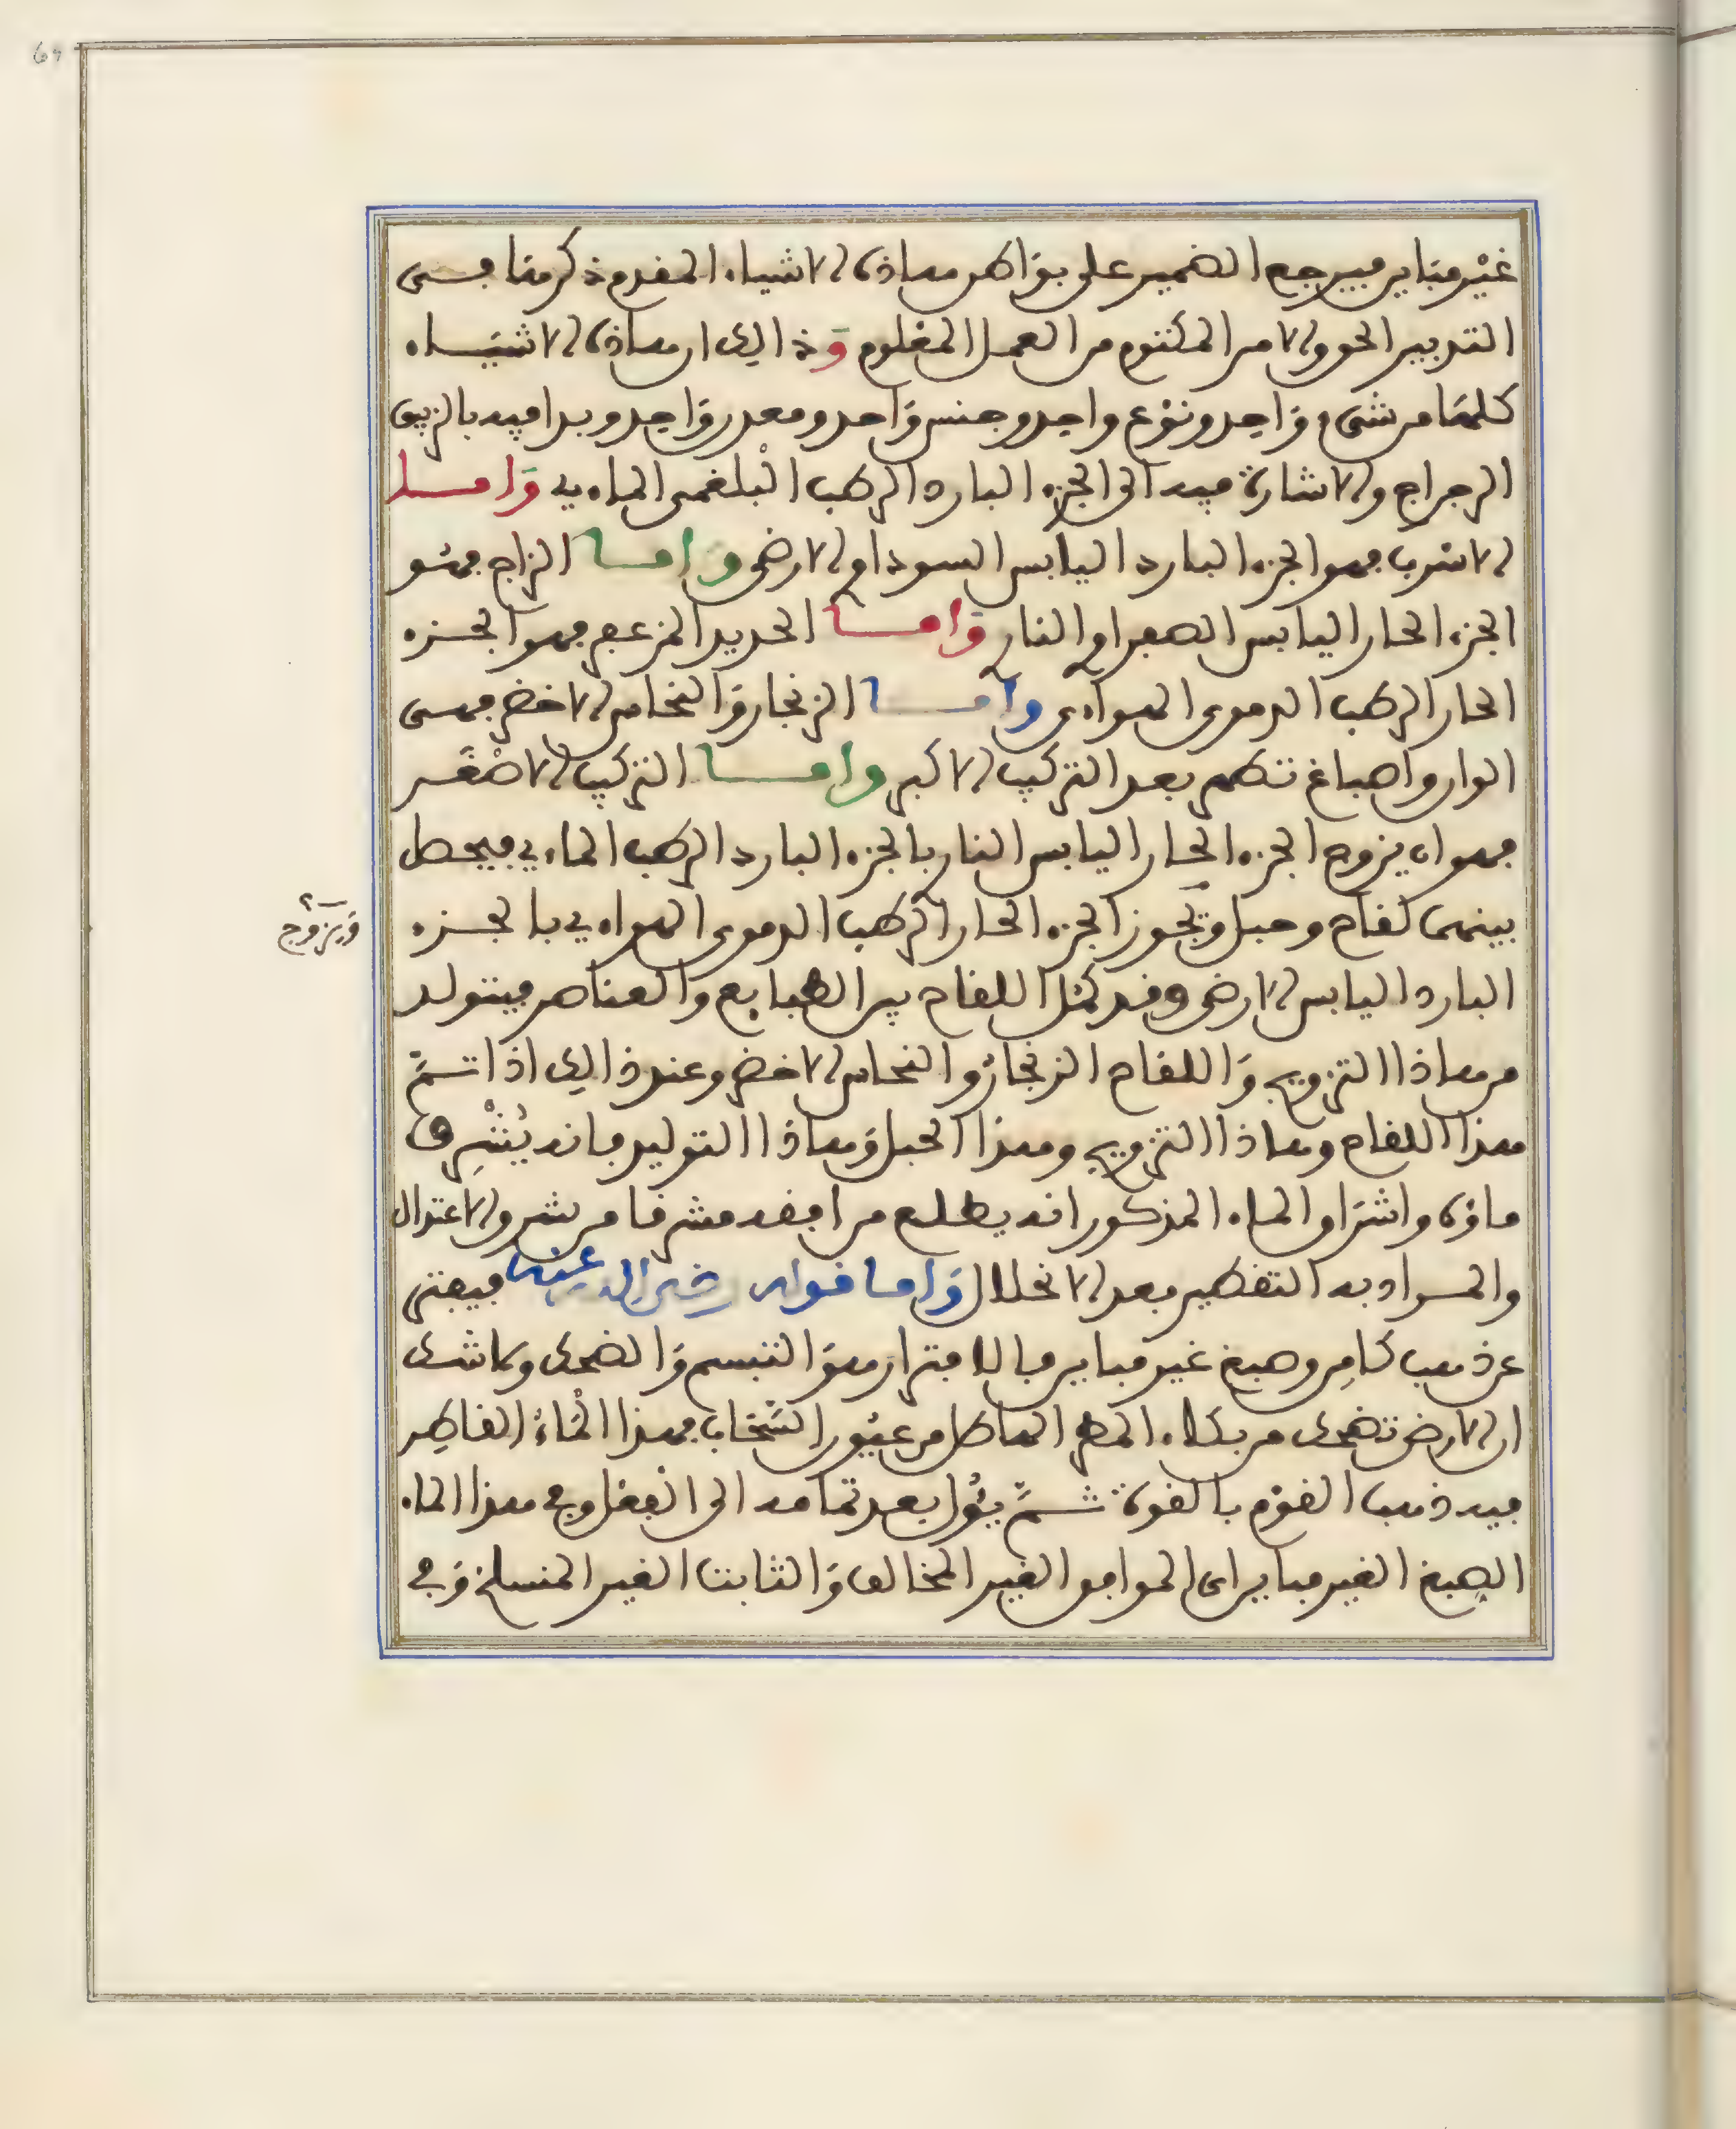 69
غير مباين فيرجع الضمير على بواطن هاذه الاشياء المقدم ذكرها فهى
التدبير الحق والامر المكتوم من العمل المعلوم وذالك ان هاذه الاشيــاء
كلها من شىء واحد ونوع واحد وجنس واحد ومعدن واحد وبدا فيه بالزيبق
الرجراج والاشارة فيه الى الجزء البارد الرطب البلغمى الماءي واما
الاسرب فهو الجزء البارد اليابس السوداوى الارضى واما الزاج فهو
الجزء الحار اليابس الصفراوى النارى واما الحديد المزعفر فهو الجزء
الحار الرطب الدموى الهواءى واما الزنجار والنحاس الاخضر فهى
الوان واصباغ تظهر بعد التركيب الاكبر واما التركيب الاصغر
فهو ان يزوج الجزء الحار اليابس النارى بالجزء البارد الرطب الماءي فيحصل
بينهما لقاح وحبل ويجوز الجزء الحار الرطب الدموى الهواءي بالجزء
ويزوج
البارد اليابس الارضى وقد كمل اللقاح بين الطبايع والعناصر فيتولد
من هاذا التزويج واللقاح الزنجار والنحاس الاخضر وعند ذالك اذا تم
هذا اللقاح وهاذا التزويج وهذا الحبل وهاذا التوليد فانه يشرق
ماؤه واشراق الماء المذكور انه يطلع من افقه مشرقا من شرق الاعتدال
والمراد به التقطير بعد الانحلال واما قوله رضى الله عنه فيفتر
عن ذهب كامن وصبغ غير مباين فالافترار هو التبسم والضحك ولا شك
ان الارض تضحك من بكاء المطر الهاطل من عيون السحاب فهذا الماء القاطر
فيه ذهب القوم بالقوة ثم يئول بعد تمامه الى الفعل وفى هذا الماء
الصبغ الغير مباين اى الموافق الغير المخالف والثابت الغير المنسلخ وفى